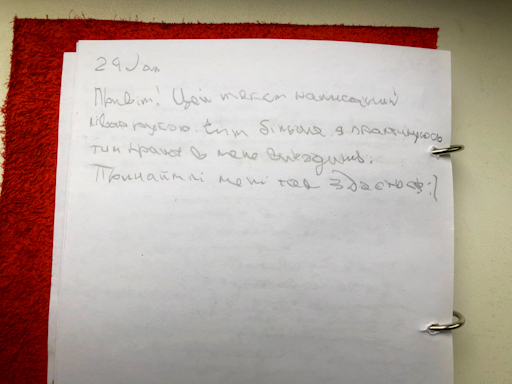 29 Jan
Привіт! Цей текст написаний
лівою рукою. Чим більше я практикуюсь
тим краще в мене виходить.
Принаймні мені так здається :)